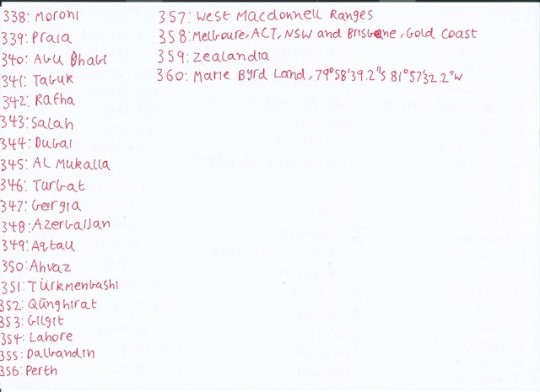 338: Moroni
339: Praia
340: Abu Dhabi
341: Tabuk
342: Rafha
343: Salah
344: Dubai
345: AL Mukalla
346: Turbat
347: Georgia
348: Azerbaijan
349: Aqtau
350: Ahvaz
351: Türkmenbashi
352: Qūnghirat
353: Gilgit
354: Lahore
355: Dalbandin
356: Perth
357: West Macdonnell Ranges
358: Melboure, ACT, NSW and Brisbane, Gold Coast
359: Zealandia
360: Marie Byrd Land, 79°58'39.2"S 81°57'32.2"W